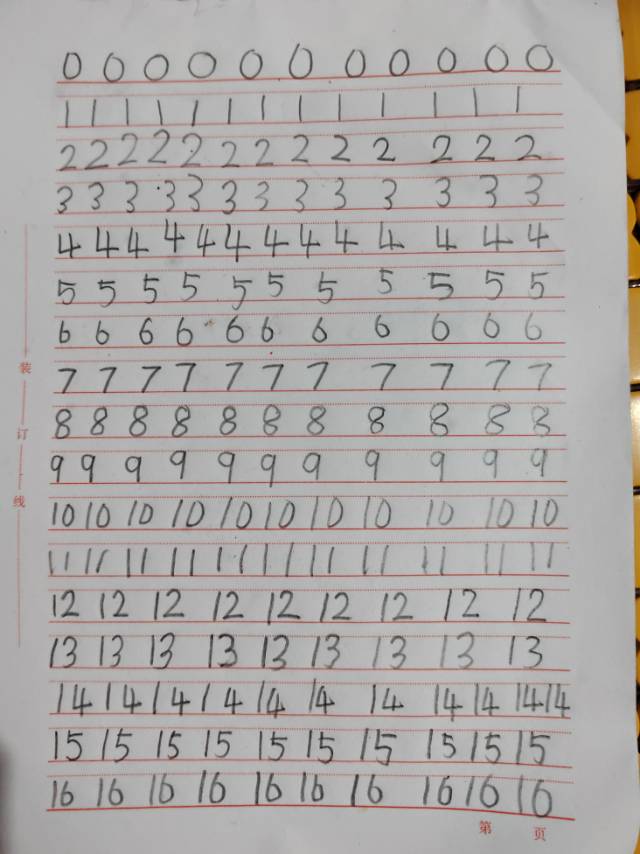 0 0 0 0 0 0 0 0 0 0 0
1 1 1 1 1 1 1 1 1 1 1 1 1
2 2 2 2 2 2 2 2 2 2 2 2 2
3 3 3 3 3 3 3 3 3 3 3 3 3
4 4 4 4 4 4 4 4 4 4 4 4 4
5 5 5 5 5 5 5 5 5 5 5
6 6 6 6 6 6 6 6 6 6 6
7 7 7 7 7 7 7 7 7 7 7
8 8 8 8 8 8 8 8 8 8 8
9 9 9 9 9 9 9 9 9 9 9
10 10 10 10 10 10 10 10 10 10 10
11 11 11 11 11 11 11 11 11 11 11
12 12 12 12 12 12 12 12 12
13 13 13 13 13 13 13 13 13
14 14 14 14 14 14 14 14 14 14 14
15 15 15 15 15 15 15 15 15 15
16 16 16 16 16 16 16 16 16 16
装订线
第 页